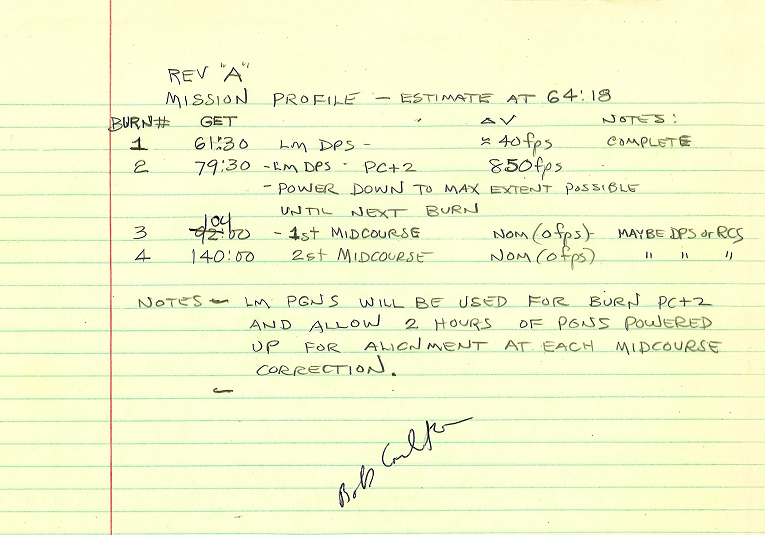 REV "A"
MISSION PROFILE - ESTIMATE AT 64:18
BURN# GET ΔV NOTES:
1 61:30 LM DPS - ≈ 40fps COMPLETE
2 79:30 - LM DPS - PC+2 850fps
- POWER DOWN TO MAX EXTENT POSSIBLE
UNTIL NEXT BURN
104
3 92:00 - 1st MIDCOURSE NOM (0fps) - MAYBE DPS or RCS
4 140:00 2st MIDCOURSE NOM (0fps) " " "
NOTES - LM PGNS WILL BE USED FOR BURN PC+2
AND ALLOW 2 HOURS OF PGNS POWERED
UP FOR ALIGNMENT AT EACH MIDCOURSE
CORRECTION.
-
Bob Carlton